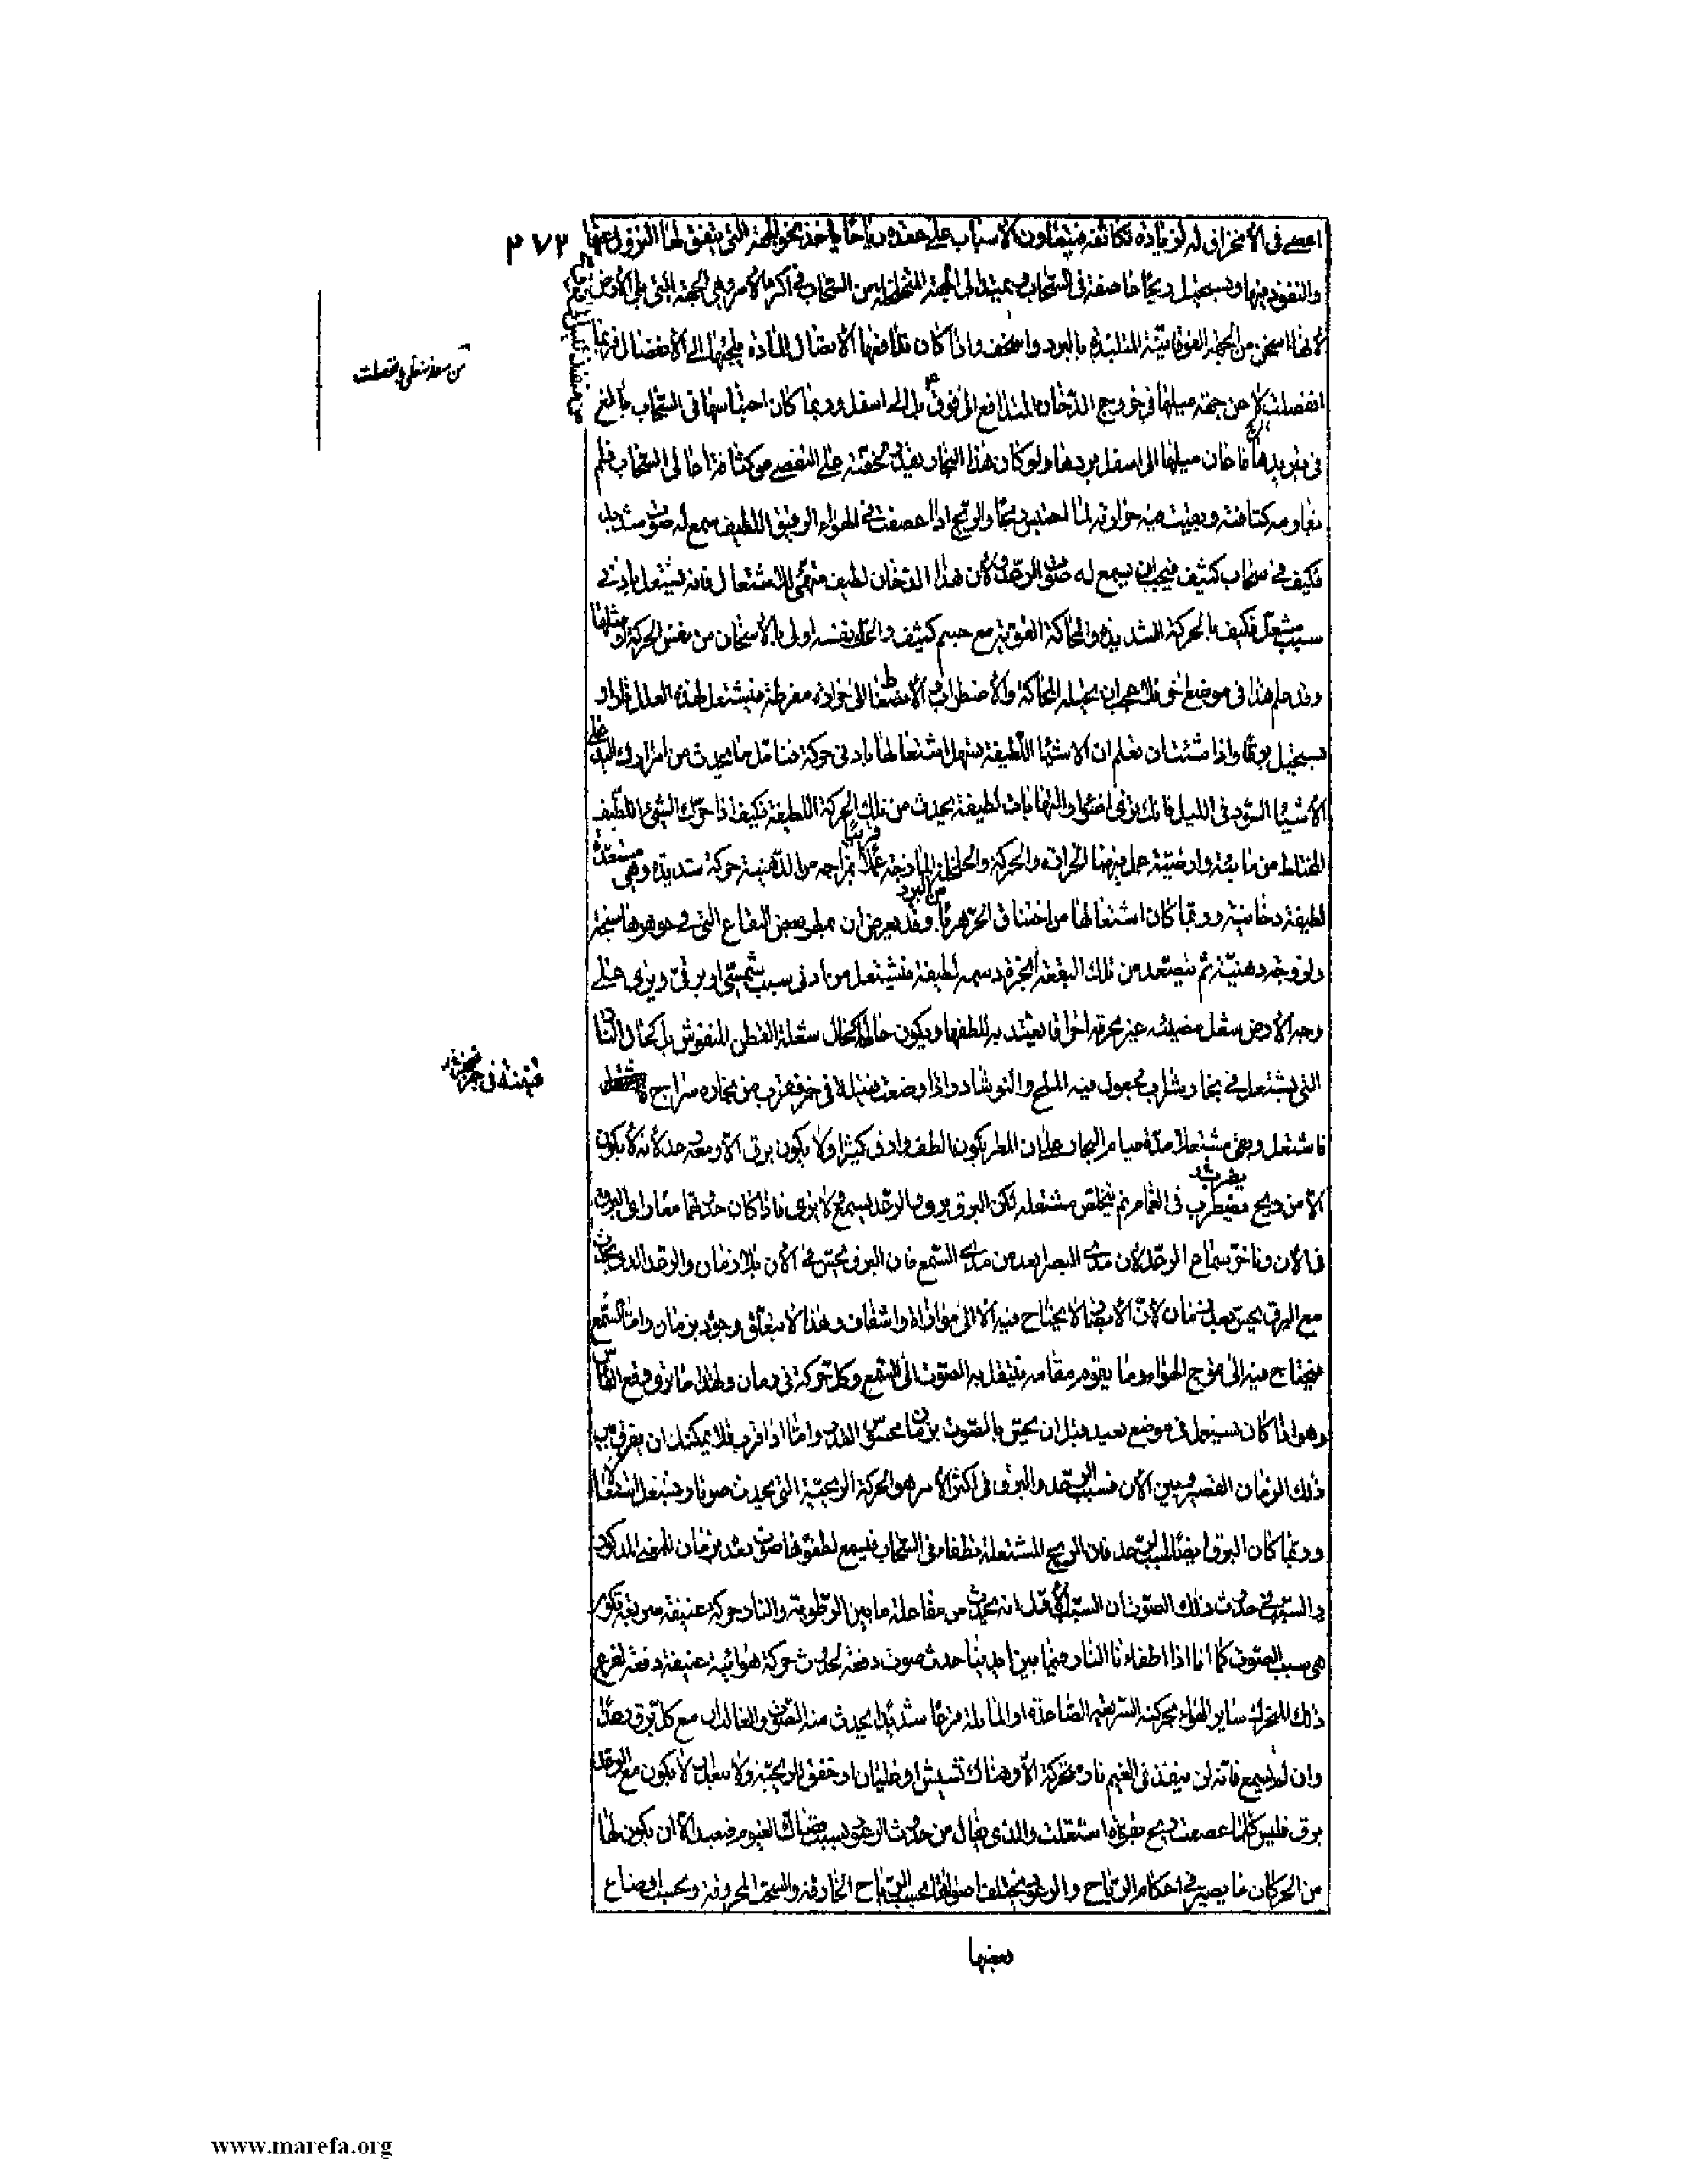 ٢٧٣
اعصى فى الانخراق له لزيادة تكاثفه فيتعاون الاسباب على حقنه رياحا ياخذ نحو الجهة التى يتفق لها النزول عنها
والنفوذ منها ويستحيل ريحا عاصفة فى السحاب يميد الى الجهة من السحاب فى اكثر الامر وهى الجهة التى يلى الارض
لانها اسخن من الجهة الفوقانية المتلبدة بالبرد واسخف واذا كان تدافعها الاتصال المادة يلجئها الى الانفصال فربما
انفصلت لا عن جهة ميلها فى خروج الدخان المندافع الى فوق بل الى اسفل وربما كان احتباسها فى السحاب بالغ
فى تبريدها فاعان ميلها الى اسفل بردها ولو كان هذا البخار يقدر لخفته على التفصى من كثافة اعالى السحاب فلم
يقاومه كثافته وبقيت فيه حرارته لما احتبس ريحا والريح اذا عصفت فى الهواء الرقيق اللطيف سمع له صوت شديد
فكيف فى سحاب كثيف فيجب ان يسمع له صوت الرعد ولان هذا الدخان لطيف متهيئ للاشتعال فانه يشتعل بادنى
سبب مشعل فكيف بالحركة الشديدة والمحاكة القوية مع جسم كثيف والحك بنفسه اولى بالاسخان من نفس الحركة
وقد علم هذا فى موضع اخر فلا عجب ان يحيله المحاكة والاضطراب الى حرارة مفرطة فيشتعل لهذه العلل نارا او
يستحيل برقا واذا شئت ان تعلم ان الاشياء اللطيفة يسهل اشتعالها بادنى حركة فتامل ما يحدث من امرارك اليد على
الاشياء السود فى الليل فانك ترى اضواء والتهابات لطيفة يحدث من تلك الحركة اللطيفة فكيف اذا حرك الشئ اللطيف
المختلط من مائية وارضية عمل فيهما الحرارة والحركة والخلخلة المازجة عملا قرب مزاجه من الدهنية حركة شديدة وهى مستعدة
لطيفة دخانية وربما كان اشتعالها من اختناق الحر هربا من البرد وقد يعرض ان يمطر بعض البقاع التى فى جوهرها سبخة
ولزوجة دهنية ثم يتصعد من تلك البقعة ابخرة دسمة لطيفة فيشتعل من ادنى سبب شمسى او برقى ويرى على
وجه الارض شعل مضيئة غير محرقة احراقا يعتد به للطفها ويكون حالها كحال شعلة القطن المنفوش بل كحال النار
التى يشتعل فى بخار شراب مجعول فيه الملح والنوشادر اذا وضعت فتيلة فى خمر فقرب من بخاره سراج
فاشتعل وبقى مشتعلا مدة قيام البخار على ان المطر يكون الطف وادق كثيرا ولا يكون برق الا ومعه رعد لانه لا يكون
الا من ريح يضطرب فى الغمام ثم يتخلص مشتعلة لكن البرق يرى والرعد يسمع ولا يرى فاذا كان حدوثهما معا راى البرق
فى الان وتاخر سماع الرعد لان مدى البصر ابعد من مدى السمع فان البرق يحس فى الان بلا زمان والرعد الذى يحدث
مع البرق يحس بعد زمان لان الابصار لا يحتاج فيه الا الى موازاة واشفاف وهذا لا يتعلق وجوده بزمان واما السمع
فيحتاج فيه الى تموج الهواء وما يقوم مقامه ينتقل به الصوت الى السمع وكل حركة فى زمان ولهذا ما ترى وقع الفاس
وهو اذا كان يستعمل فى موضع بعيد قبل ان يحس بالصوت بزمان محسوس القدر واما اذا قرب فلا يمكنك ان يفرق بين
ذلك الزمان القصير وبين الان فسبب الرعد والبرق فى اكثر الامر هو الحركة الريحية التى يحدث صوتا ويشتعل اشتعالا
وربما كان البرق ايضا سبب الرعد فان الريح المشتعلة يطفا فى السحاب فيسمع لطفوها صوت بعد زمان للمعنى المذكور
والسبب فى حدوث ذلك الصوت ان السبب انه يحدث من مفاعلة ما بين الرطوبة والنار حركة عنيفة سريعة قوية
هى سبب الصوت كما انا اذا اطفانا النار فيما بين ايدينا حدث صوت دفعة لحدوث حركة هوائية عنيفة دفعة يقرع
ذلك المتحرك ساير الهواء بحركته السريعة الصاعدة او المايلة قرعا شديدا يحدث منه الصوت والغالب ان مع كل برق رعدا
وان لم يسمع فانه لن ينفذ فى الغيم نار متحركة الا وهناك نشيش او غليان او خفق ريحية ولا يبعد ان لا يكون مع الرعد
برق فليس كلما عصفت ريح بقوة اشتعلت والذى يقال من حدوث الرعد بسبب تصاك الغيوم فبعيد الا ان يكون لها
من الحركات ما يصير فى احكام الرياح والرعود يختلف اصواتها بحسب الرياح الخارقة والسحب المخروقة وبحسب اوضاع
بعضها
www.marefa.org